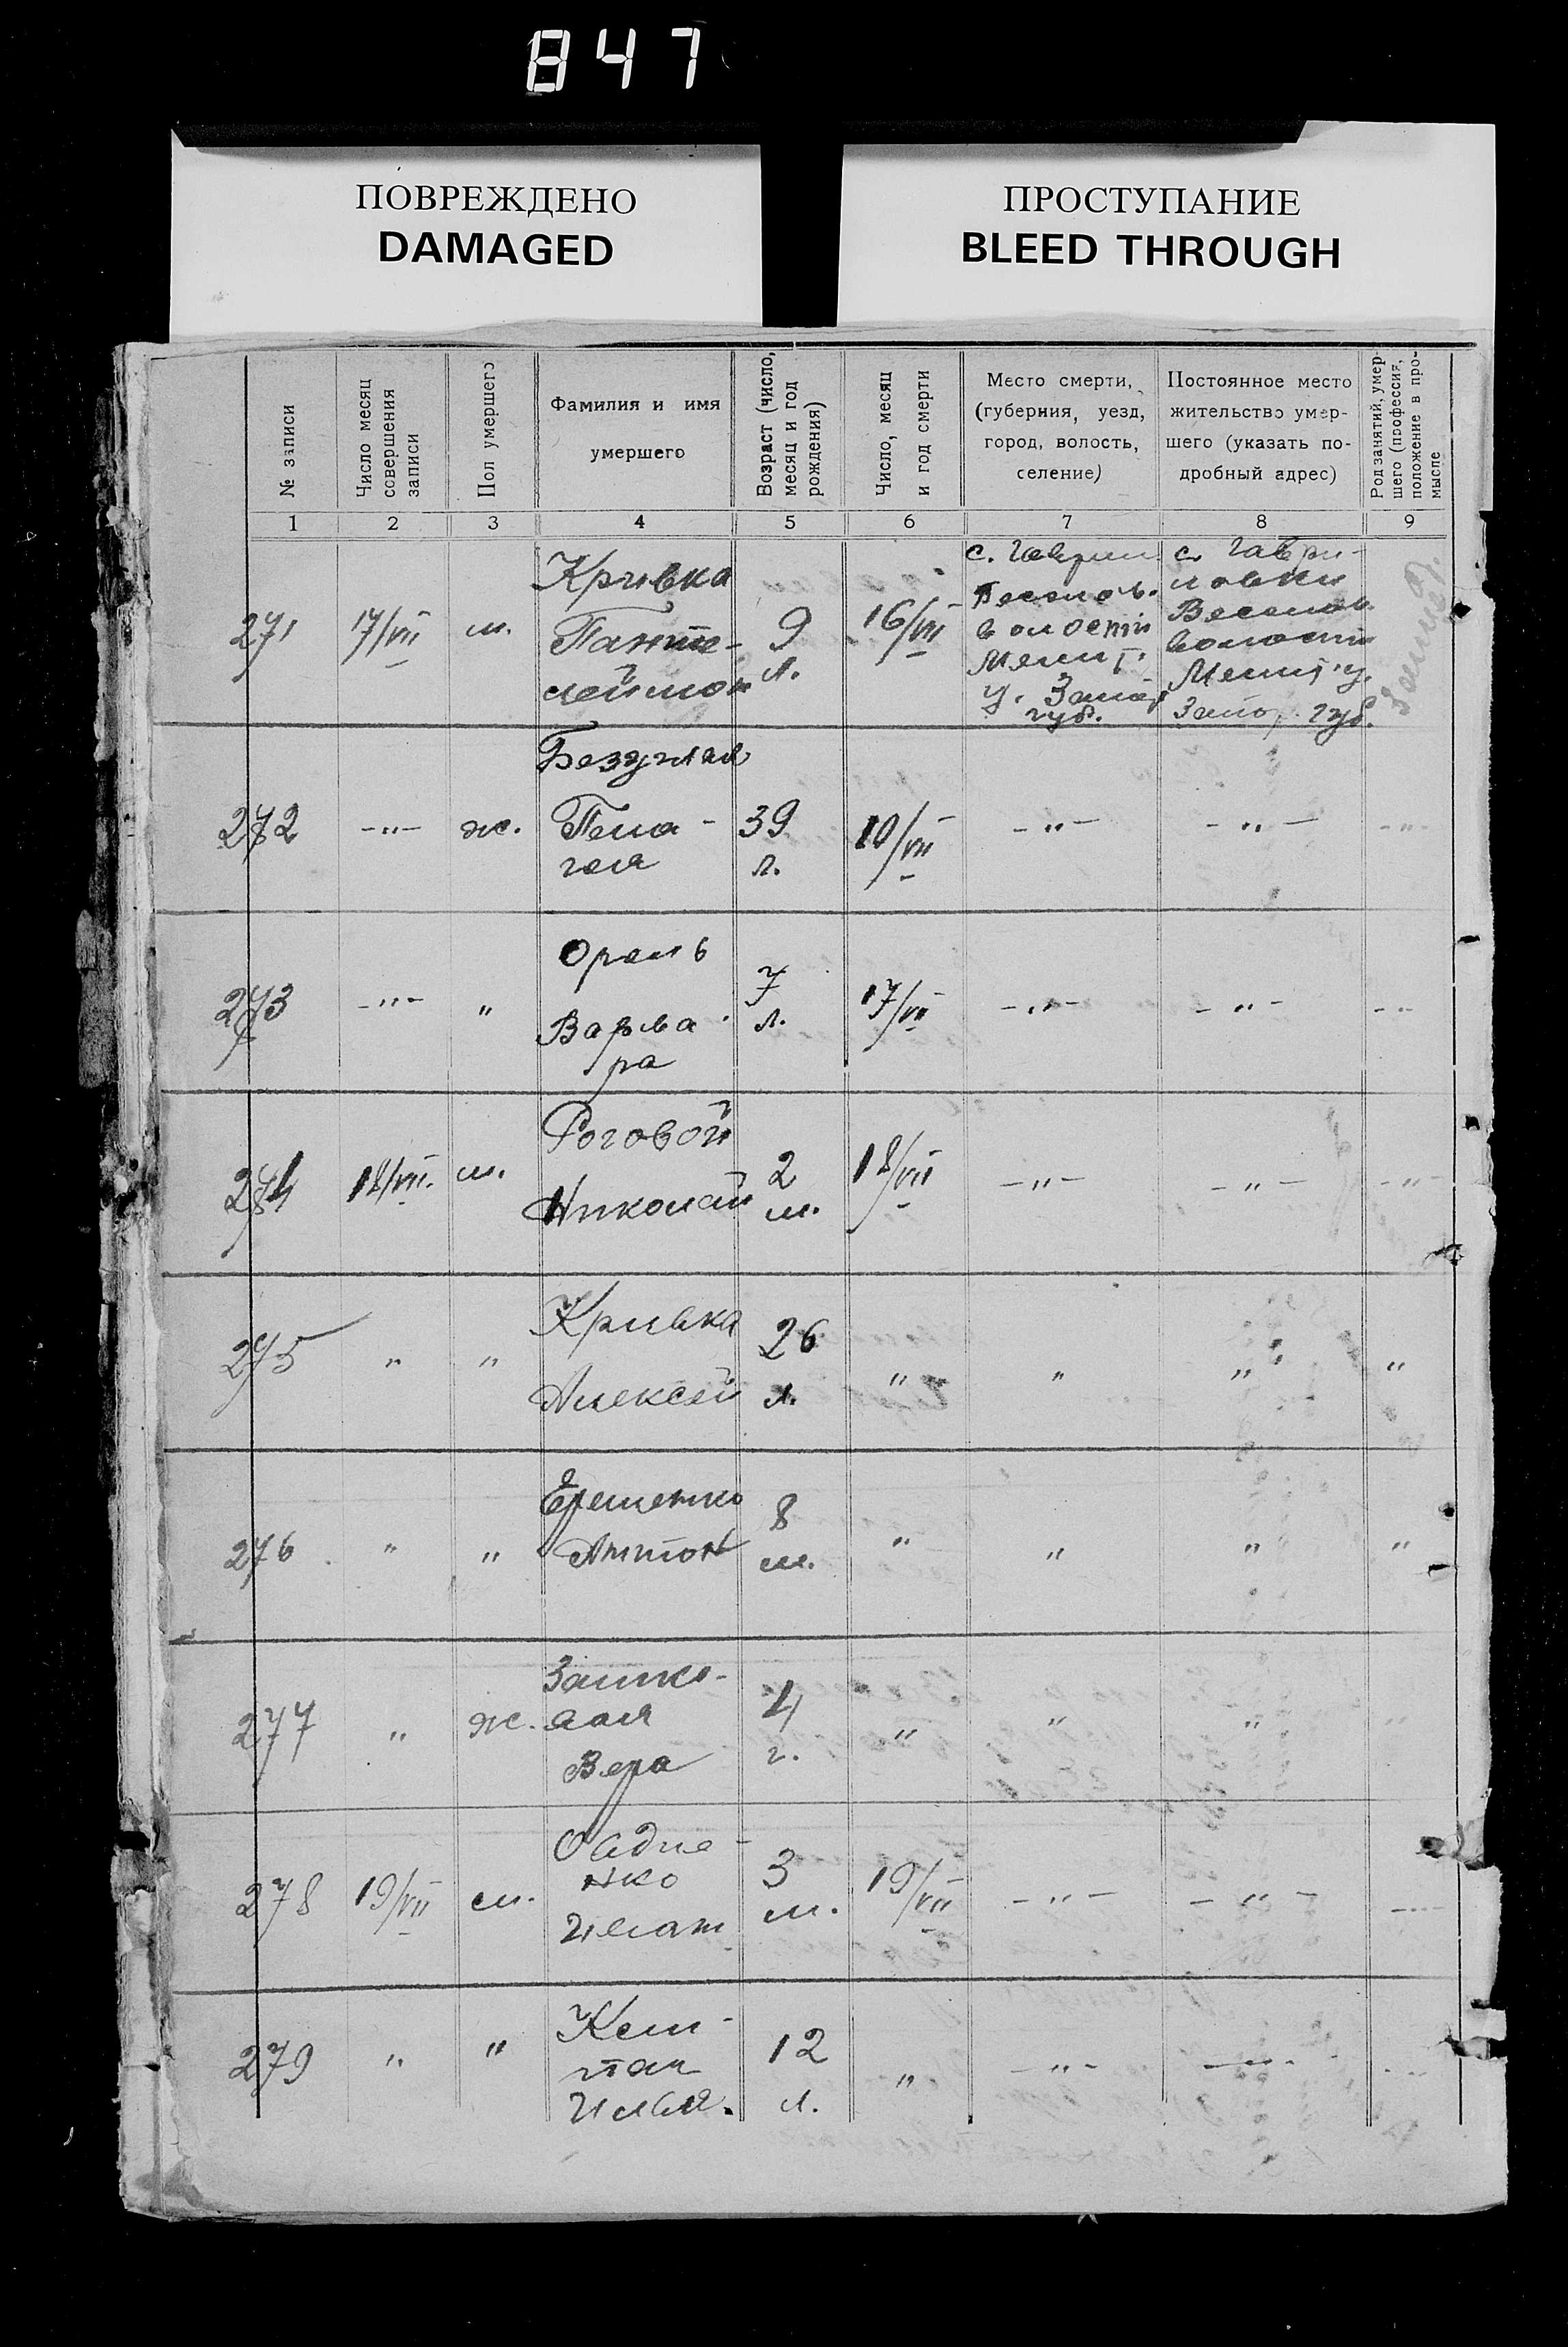 847
ПОВРЕЖДЕНО
DAMAGED
ПРОСТУПАНИЕ
BLEED THROUGH
№ записи
Число месяц
совершения
записи
Пол умершего
Фамилия и имя
умершего
Возраст (число,
месяц и год
рождения)
Число, месяц
и год смерти
Место смерти,
(губерния, уезд,
город, волость,
селение)
Постоянное место
жительство умер-
шего (указать по-
дробный адрес)
Род занятий, умер-
шего (профессия,
положение в про-
мысле
1 2 3 4 5 6 7 8 9
271
17/VII
м.
Кривка
Панте-
леймон
9
л.
16/VII
с. Гаврил
Весел ов.
волости
Мелит.
у. Запор
губ.
с. Гаври-
ловки
Веселов
волости
Мелит. у.
Запор. губ.
272
-"-
ж.
Безуглая
Пела-
гея
39
л.
10/VII
-"-
-"-
-"-
273
-"-
"
Орель
Варва-
ра
7
л.
17/VII
-"-
-"-
-"-
274
18/VII.
м.
Роговой
Николай
2
м.
18/VII
-"-
-"-
-"-
275
"
"
Кривка
Алексей
26
л.
"
"
"
"
276
"
"
Еременко
Антон
8
м.
"
"
"
"
277
"
ж.
Вера
4
г.
"
"
"
"
278
19/VII
м.
нко
Игнат
3
м.
19/VII
-"-
-"-
-"-
279
"
"
Илья.
12
л.
"
-"-
-"-
-"-